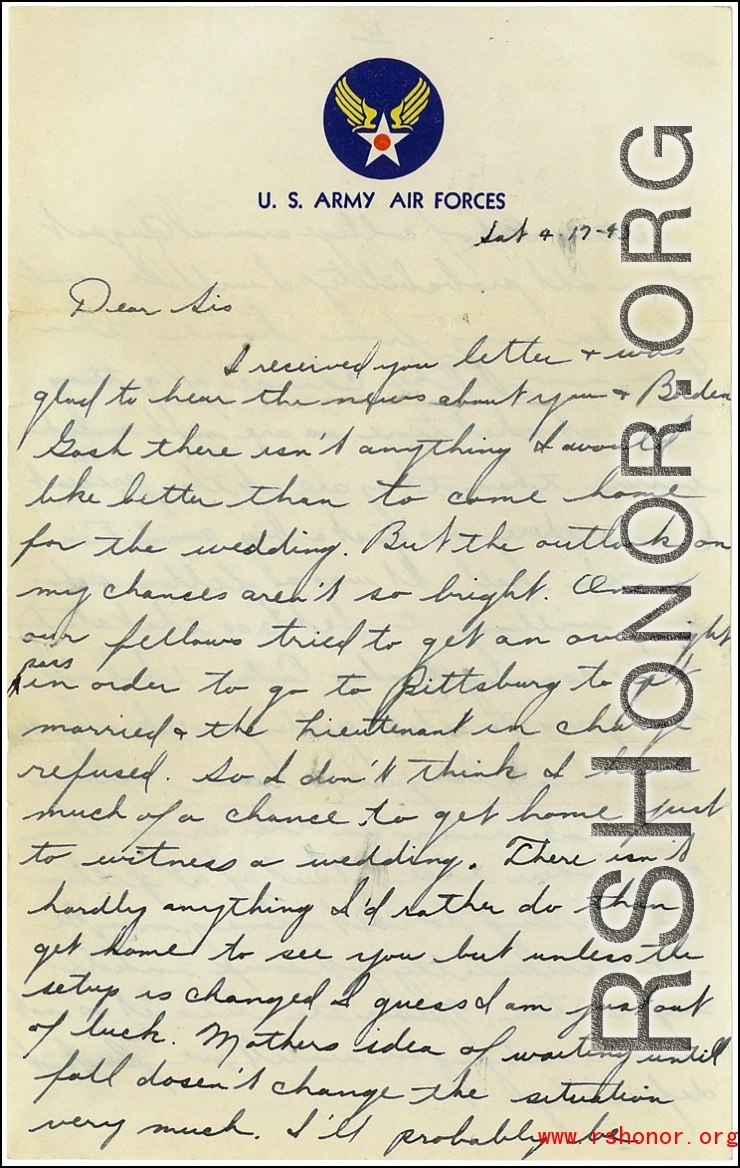 U. S. ARMY AIR FORCES
Sat 4-17-43
Dear Sis
I received you letter + was
glad to hear the news about you + Borden
Gosh there isn't anything I would
like better than to come home
for the wedding. But the outlook on
my chances aren't so bright. One
our fellows tried to get an overnight
pass
in order to go to Pittsburg to get
married + the Lieutenant in charge
refused. So I don't think I have
much of a chance to get home just
to witness a wedding. There isn't
hardly anything I'd rather do than
get home to see you but unless the
setup is changed I guess I am just out
of luck. Mothers idea of waiting until
fall dosen't change the situation
very much. I'll probably be
RSHONOR.ORG
www.rshonor.org